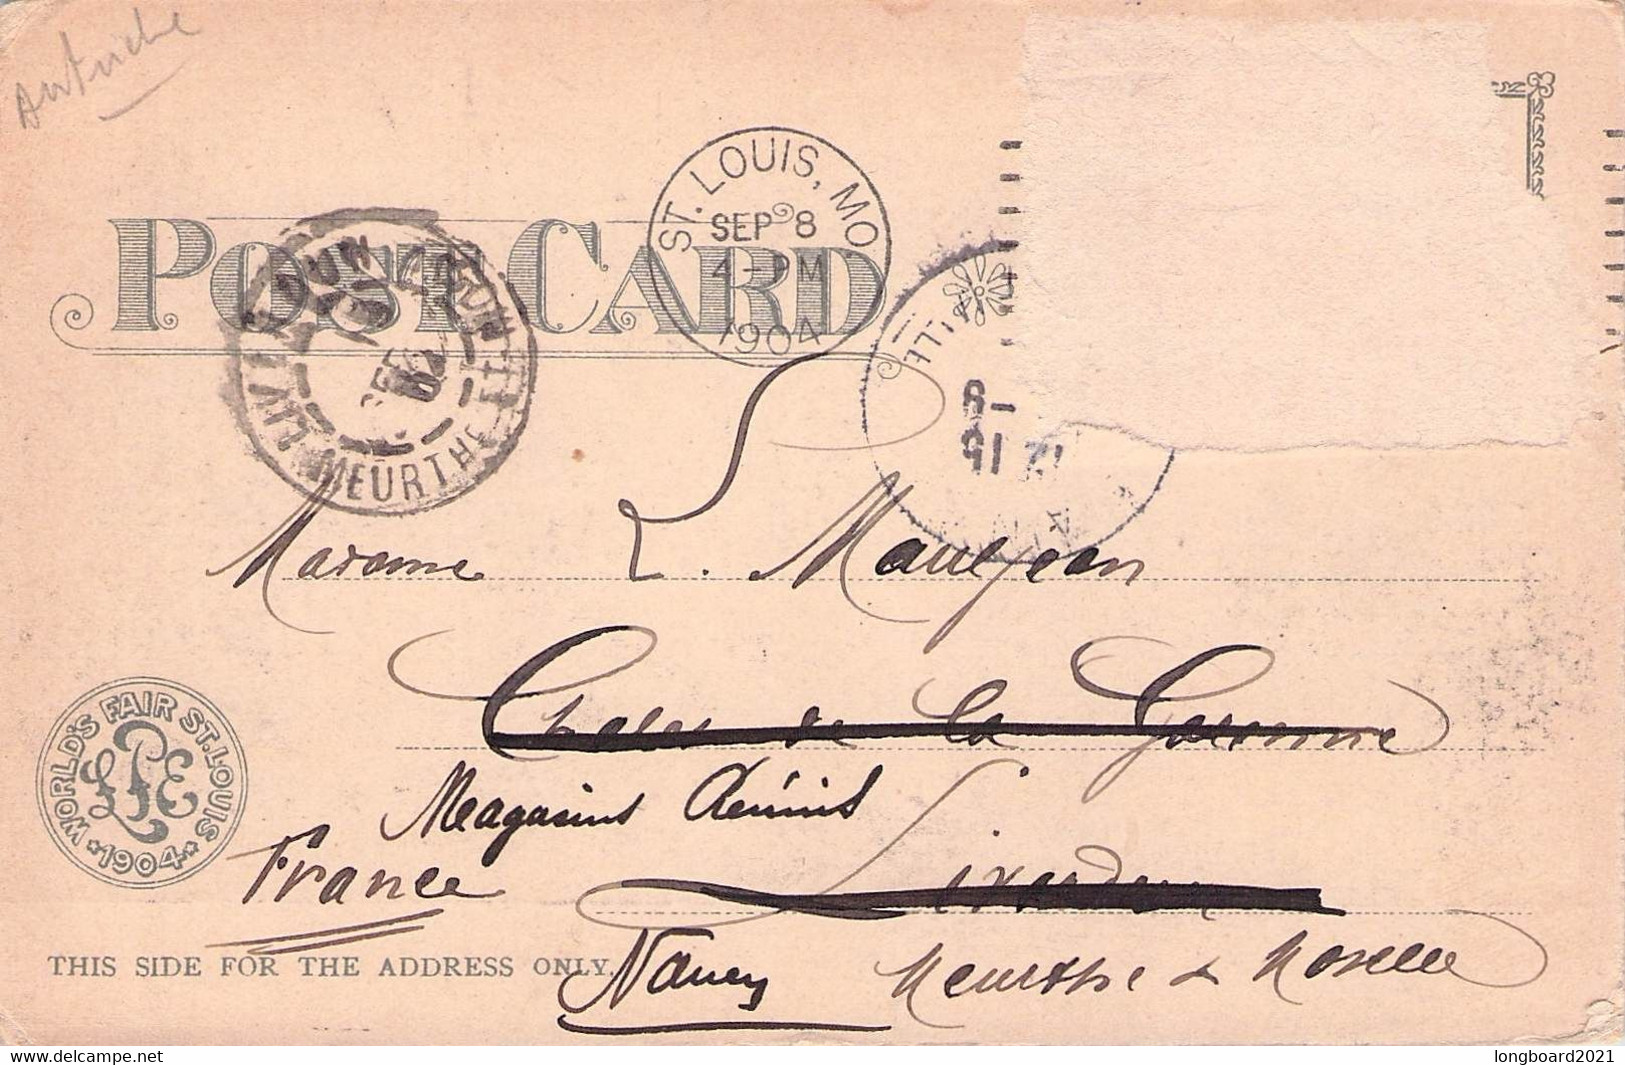 Autriche
POST CARD
ST. LOUIS, MO
SEP 8
4-PM
1904
MEURTHE
Madame L. Maujean
Chalet de la Garenne
Magasins Réunis
Liverdun
France
Nancy Meurthe & Moselle
WORLD'S FAIR ST. LOUIS
LPE
*1904*
THIS SIDE FOR THE ADDRESS ONLY.
longboard2021